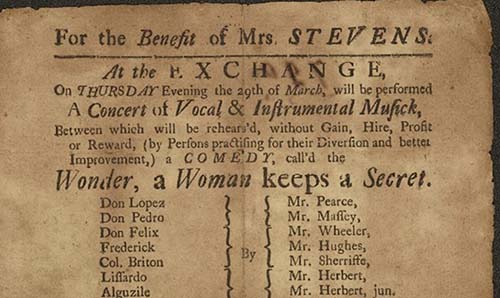 For the Benefit of Mrs. STEVENS.
At the EXCHANGE,
On THURSDAY Evening the 29th of March, will be performed
A Concert of Vocal & Inſtrumental Muſick,
Between which will be rehears'd, without Gain, Hire, Profit
or Reward, (by Perſons practiſing for their Diverſion and better
Improvement,) a COMEDY, call'd the
Wonder, a Woman keeps a Secret.
Don Lopez } { Mr. Pearce,
Don Pedro } { Mr. Maſſey,
Don Felix } { Mr. Wheeler,
Frederick } { Mr. Hughes,
Col. Briton } By { Mr. Sherriffe,
Liſſardo } { Mr. Herbert,
Alguzile } { Mr. Herbert, jun.